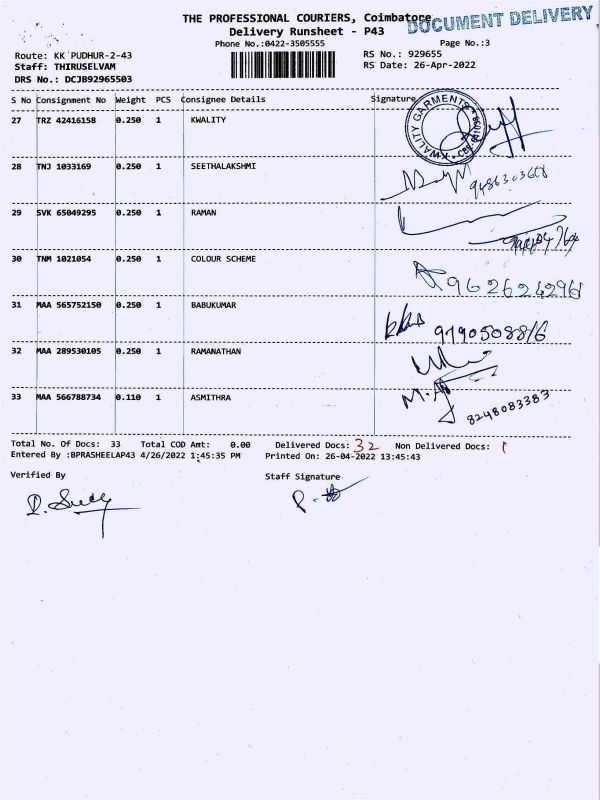 THE PROFESSIONAL COURIERS, Coimbatore
DOCUMENT DELIVERY
Delivery Runsheet - P43
Phone No.:0422-3505555
Page No.:3
Route: KK PUDHUR-2-43
RS No.: 929655
Staff: THIRUSELVAM
RS Date: 26-Apr-2022
DRS No.: DCJB92965503
S No Consignment No Weight PCS Consignee Details Signature
27 TRZ 42416158 0.250 1 KWALITY
KWALITY GARMENTS
28 TNJ 1033169 0.250 1 SEETHALAKSHMI
29 SVK 65049295 0.250 1 RAMAN
30 TNM 1021054 0.250 1 COLOUR SCHEME
9626242961
31 MAA 565752150 0.250 1 BABUKUMAR
9790508816
32 MAA 289530105 0.250 1 RAMANATHAN
33 MAA 566788734 0.110 1 ASMITHRA
8248083383
Total No. Of Docs: 33 Total COD Amt: 0.00 Delivered Docs: 32 Non Delivered Docs: 1
Entered By :BPRASHEELAP43 4/26/2022 1:45:35 PM Printed On: 26-04-2022 13:45:43
Verified By Staff Signature